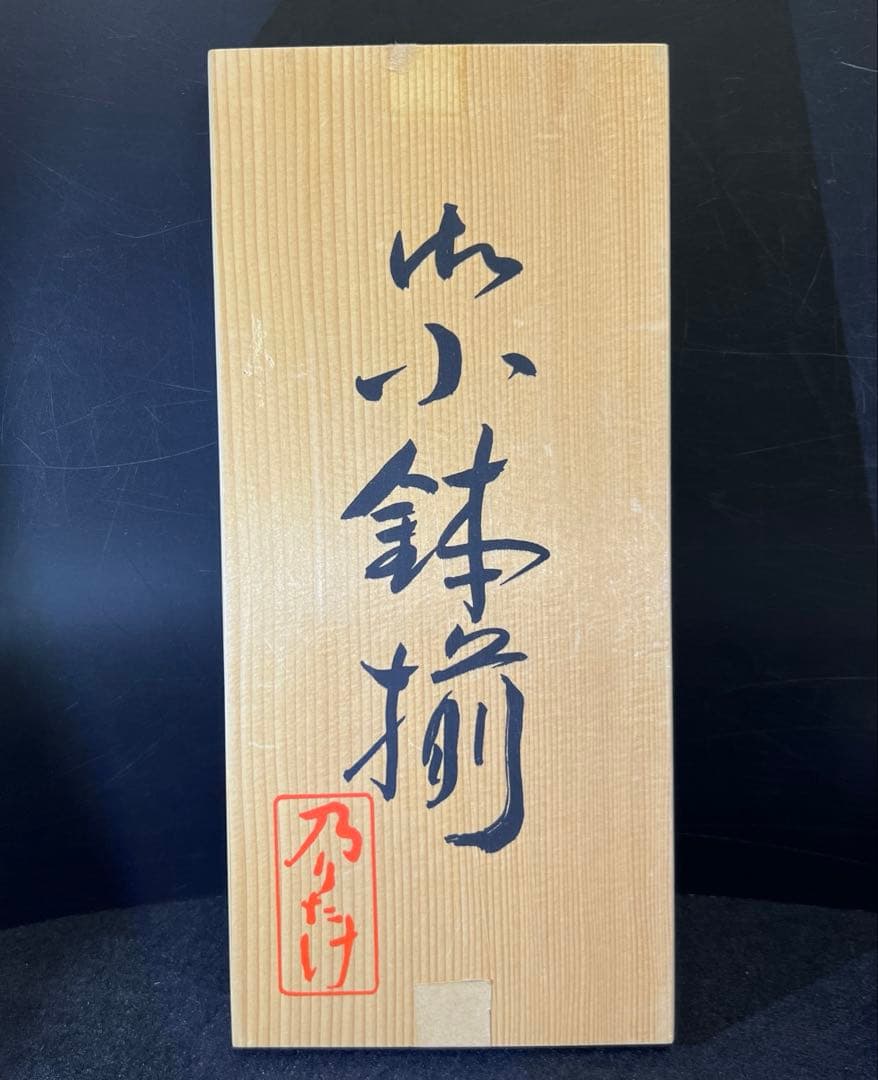 御小鉢揃
乃りたけ